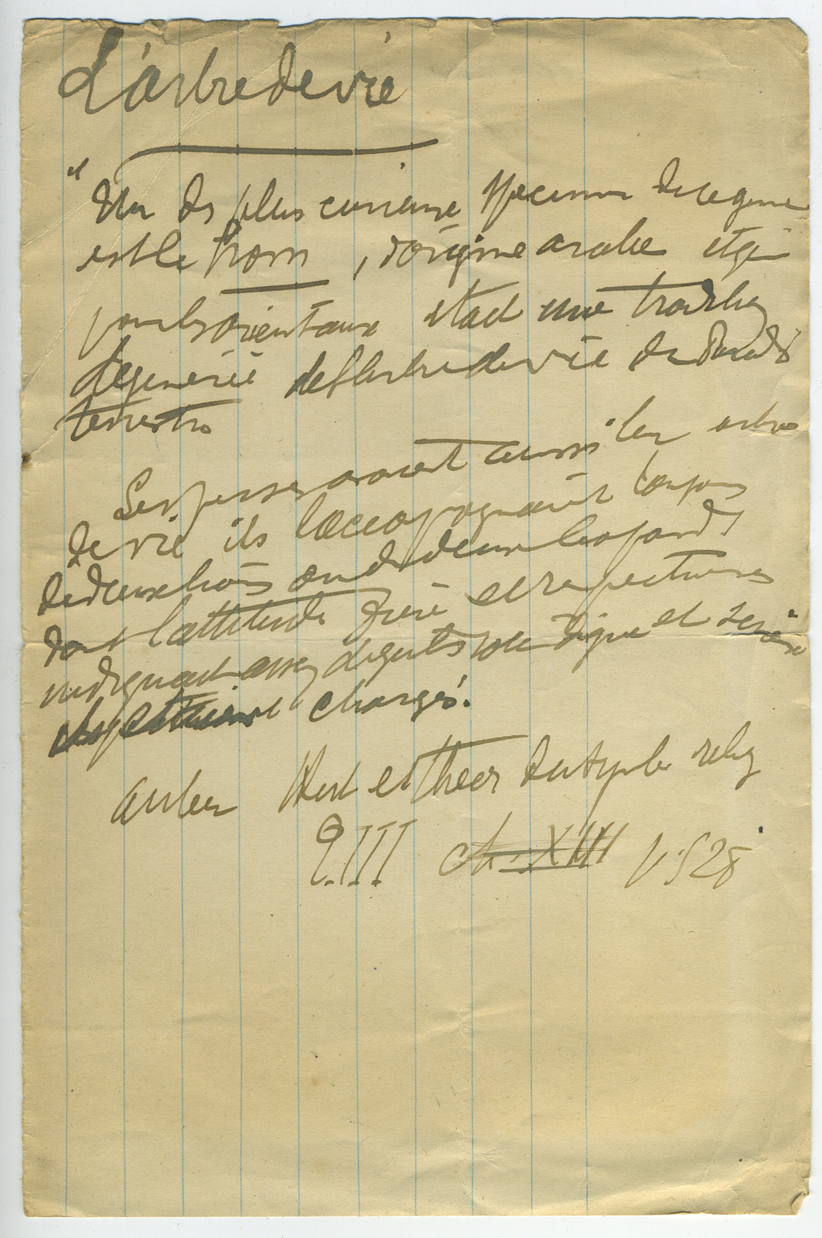 L'arbre de vie
" Un des plus curieux specimens de ce genre
est le hom, d'origine arabe et qui
pour les orientaux etait une tradition
degénérée de l'arbre de vie du Paradis
terrestre
Les perses avaient aussi leur arbre
de vie ils l'accompagnaient toujours
de deux lions ou de deux leopards
dont l'attitude fière et respectueuse
indiquait assez de quel rôle digne et serieux
ils étaient chargés.
Auber Hist et theor du symb relig
T. III ch. XIII p. 528